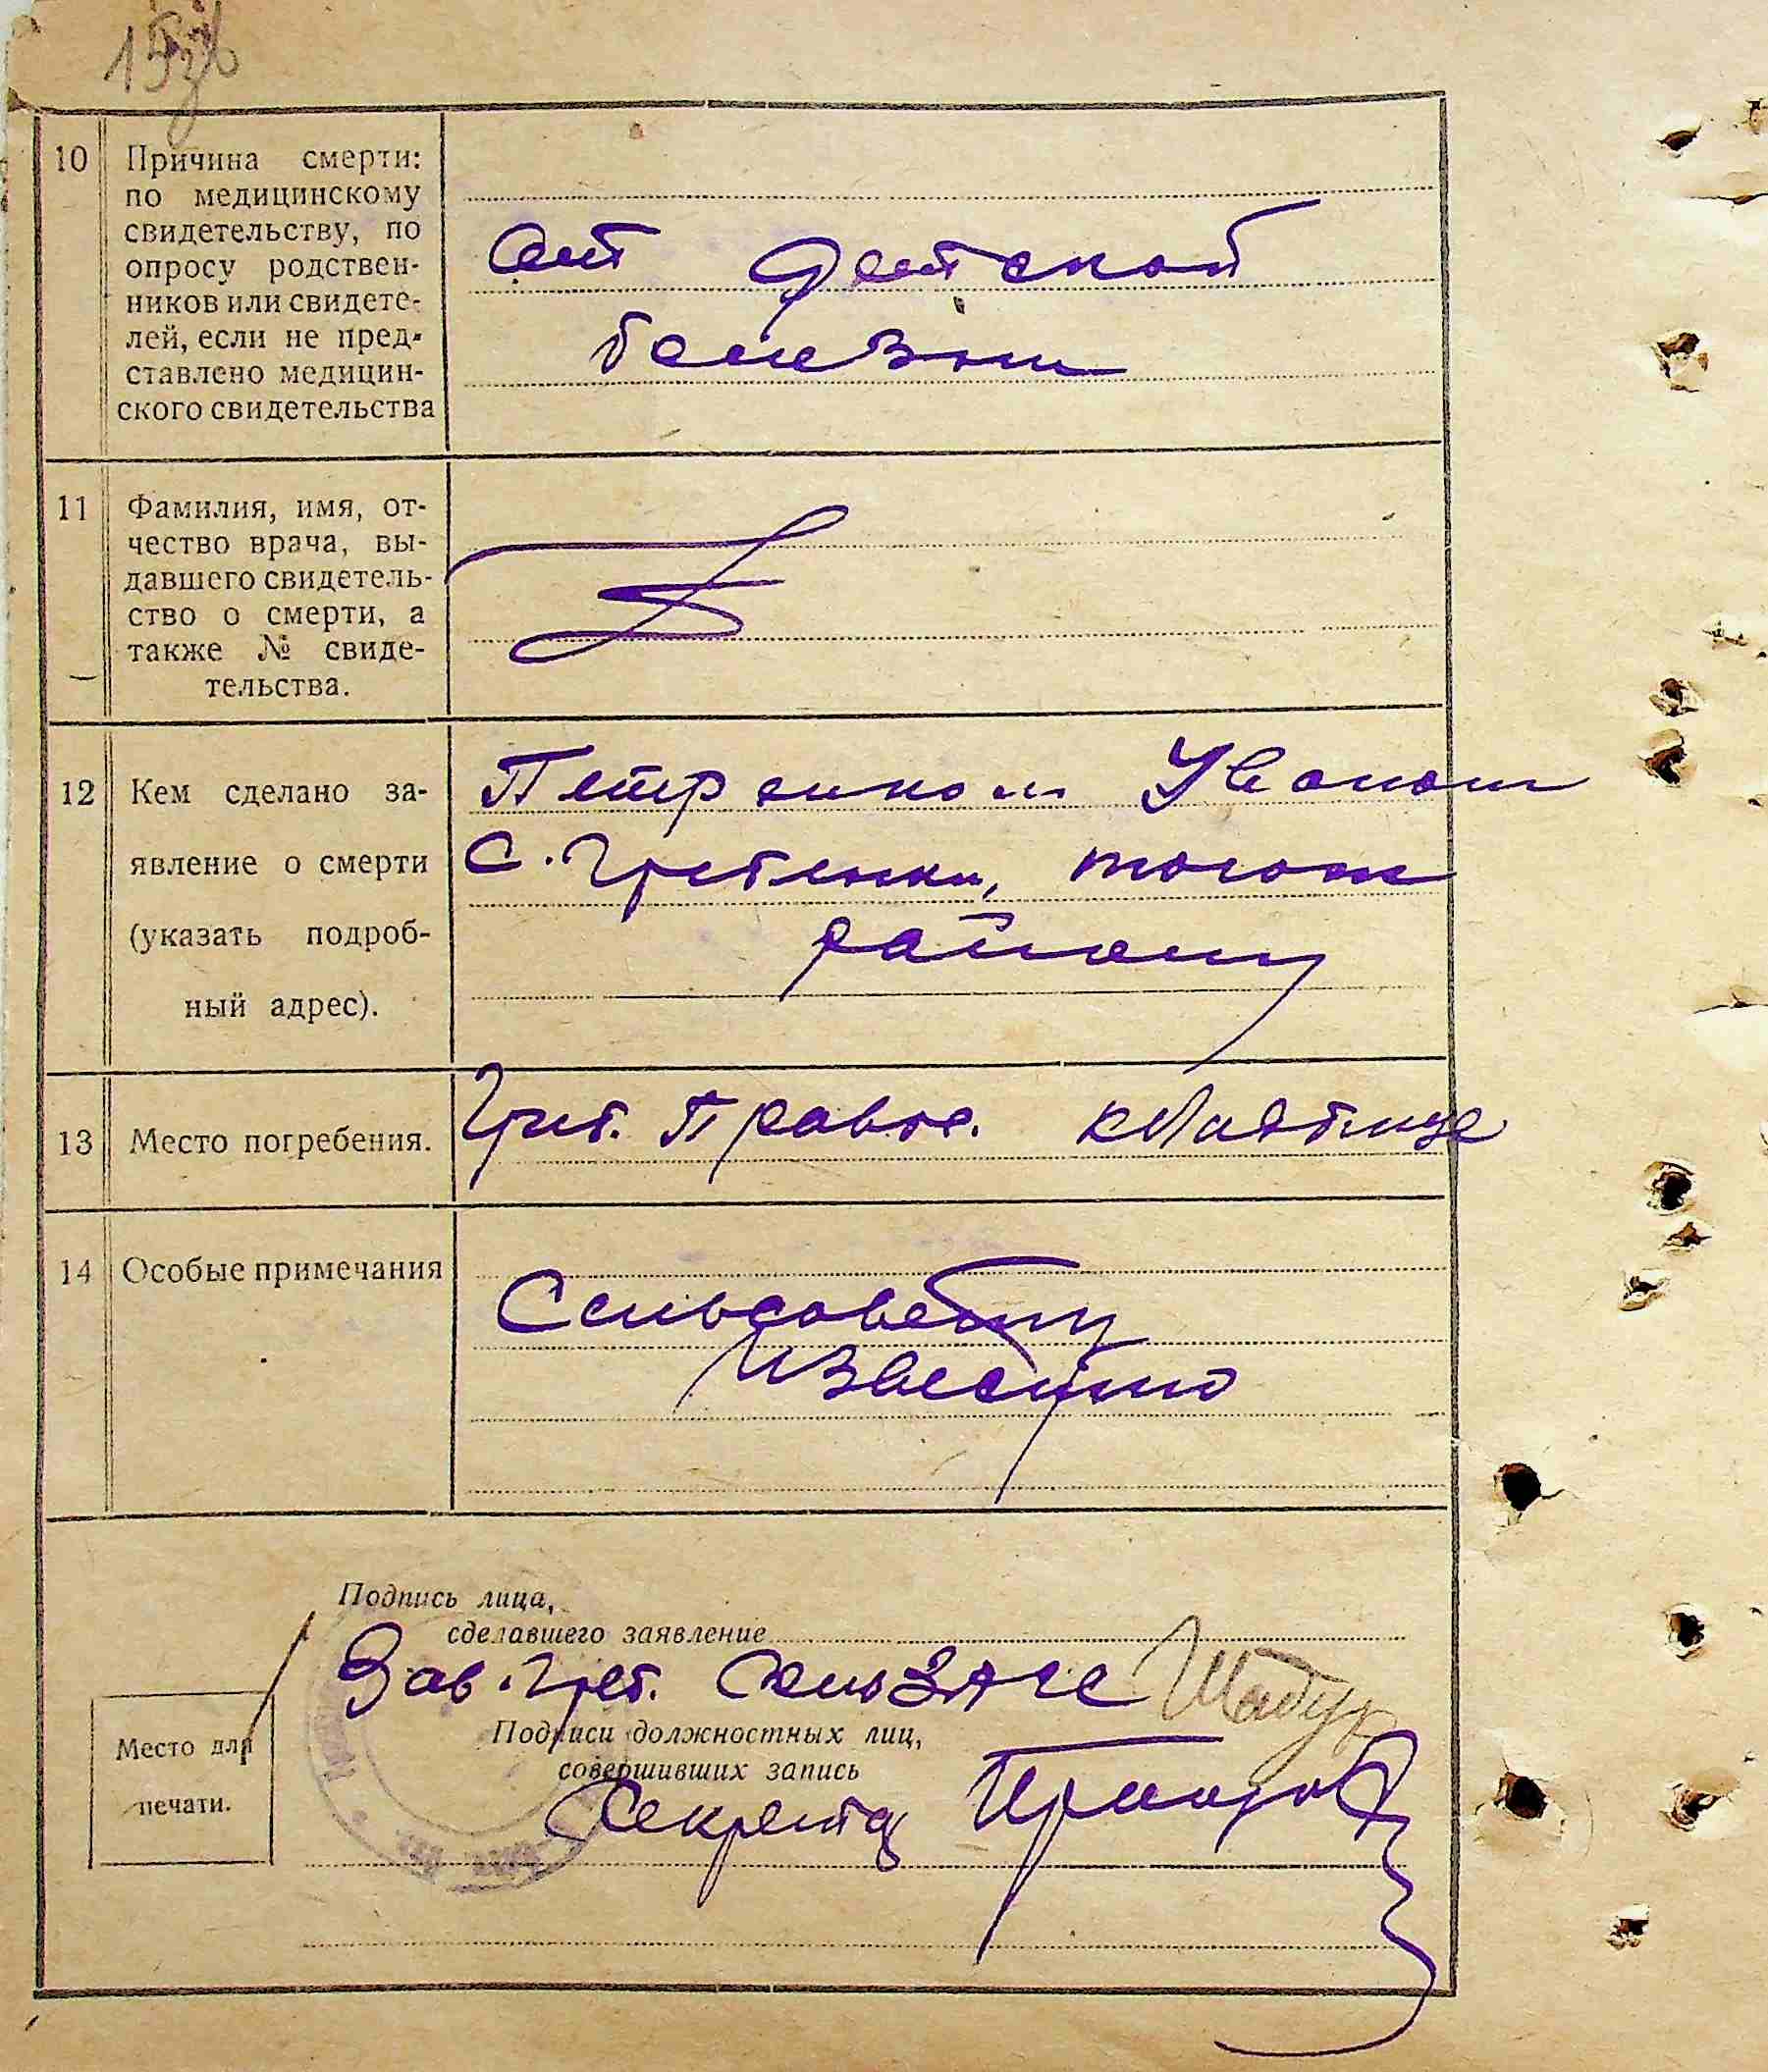 10 Причина смерти:
по медицинскому
свидетельству, по
опросу родствен-
ников или свидете-
лей, если не пред-
ставлено медицин-
ского свидетельства
от детской
болезни
11 Фамилия, имя, от-
чество врача, вы-
давшего свидетель-
ство о смерти, а
также № свиде-
тельства.
12 Кем сделано за-
явление о смерти
(указать подроб-
ный адрес).
Петренком Иваном
с. Гребенки, тогож
району
13 Место погребения.
Греб. Правос. кладбище
14 Особые примечания
Сельсовету
известно
Подпись лица,
сделавшего заявление
Зав. Греб. сельЗАГС
Подписи должностных лиц,
совершивших запись
Место для
печати.
Секретар